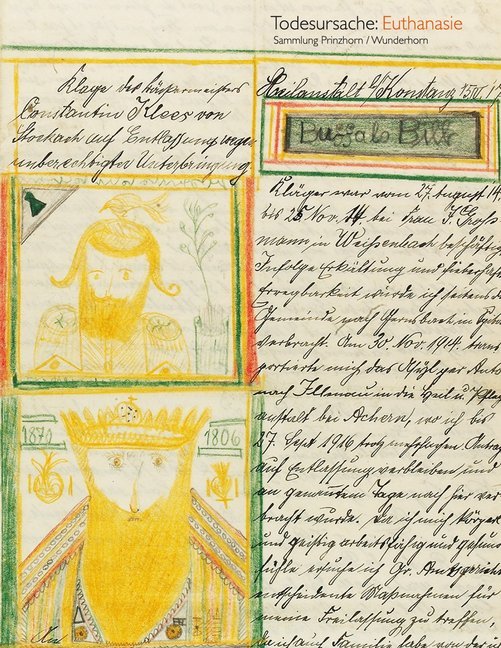 Todesursache: Euthanasie
Sammlung Prinzhorn / Wunderhorn
Klage des Bäckermeisters
Constantin Klees von
Stockach auf Entlassung wegen
unberechtigter Unterbringung
Heilanstalt b/Konstanz
Buffalo Bill
Kläger war vom 27. August 14.
bis 25. Nov. 14 bei Frau F. Groß
mann in Weißenbach beschäftigt
Infolge Erkältung und fieberhafter
Erregbarkeit wurde ich seitens der
Gemeinde nach Gernsbach in
verbracht. Am 30. Nov. 1914. trans
portierte mich das Asyl per Auto
nach Illenau in die Heil u Pfleg
anstalt bei Achern, wo ich bis
27. Sept 1916 trotz mehrfachen Antrag
auf Entlassung verbleiben und
an genanntem Tage nach hier ver
bracht wurde. Da ich mich körper
und geistig arbeitsfähig und gesund
fühle ersuche ich Gr. Amtsgericht
entscheidente Maßnahmen für
meine Freilassung zu treffen,
da ich auch Familie habe von der
1871
1806